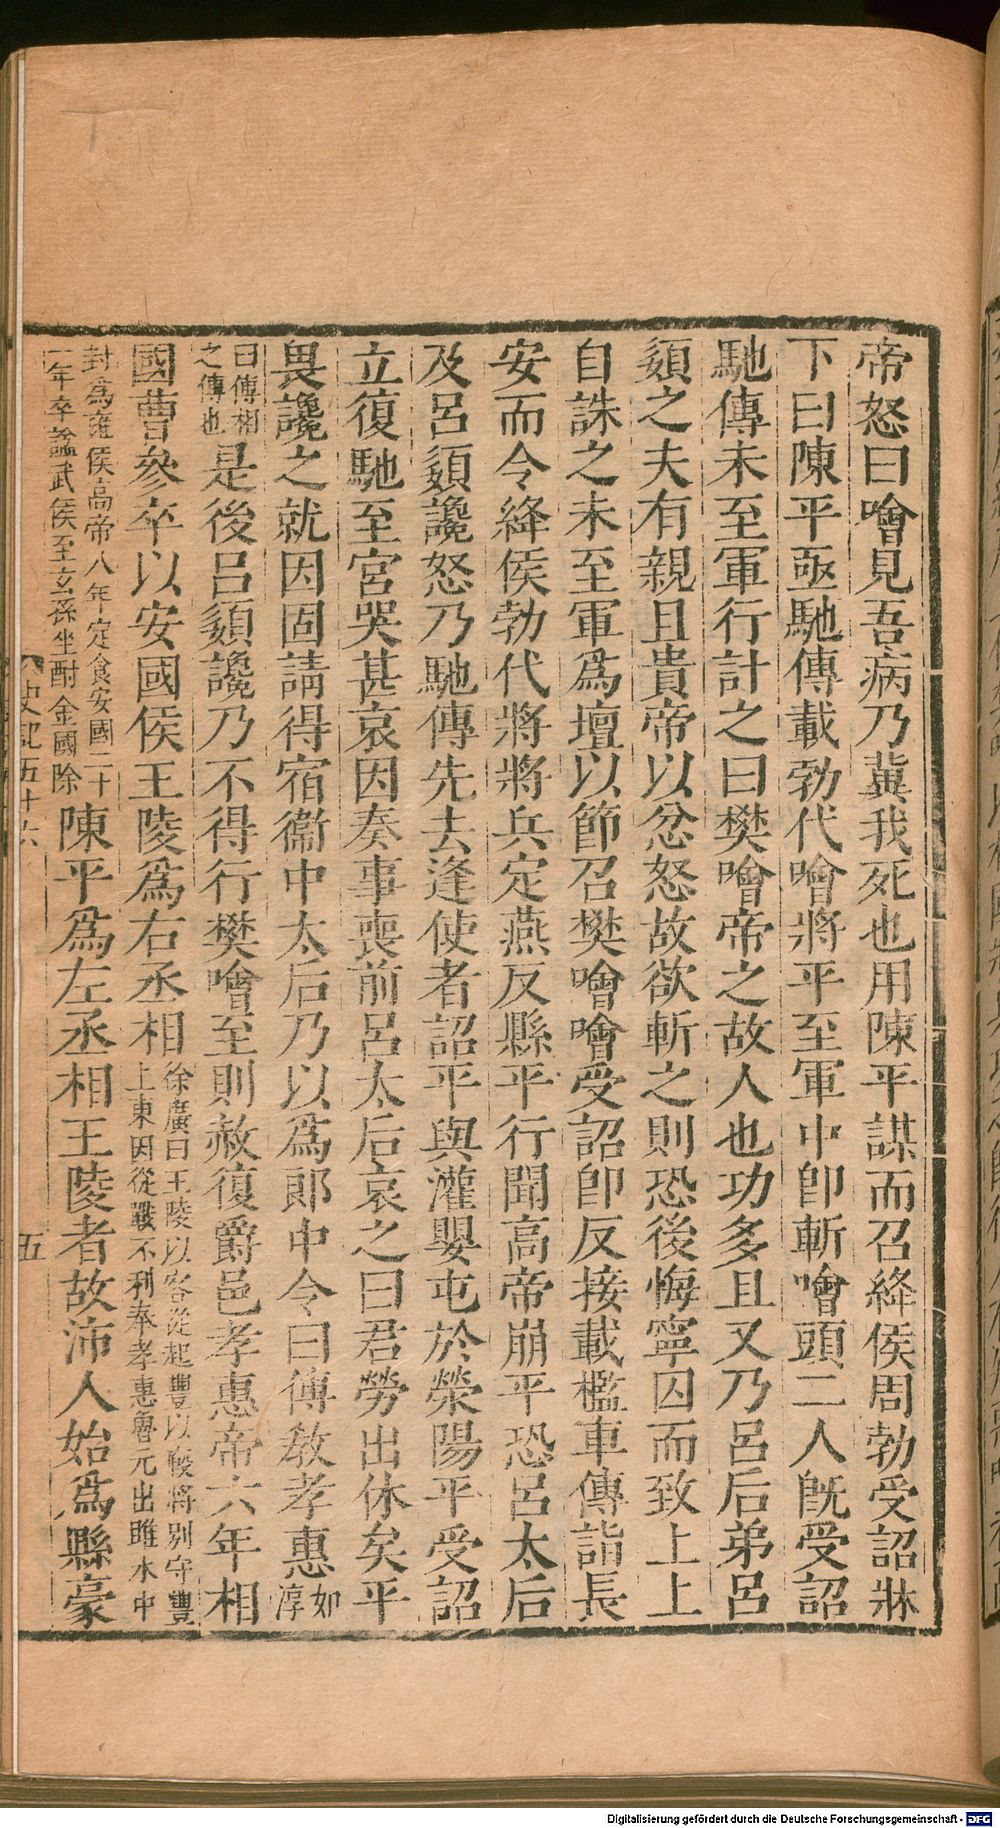 帝怒曰噲見吾病乃冀我死也用陳平謀而召絳侯周勃受詔牀
下曰陳平亟馳傳載勃代噲將平至軍中卽斬噲頭二人旣受詔
馳傳未至軍行計之曰樊噲帝之故人也功多且又乃呂后弟呂
嬃之夫有親且貴帝以忿怒故欲斬之則恐後悔寧囚而致上上
自誅之未至軍爲壇以節召樊噲噲受詔卽反接載檻車傳詣長
安而令絳侯勃代將將兵定燕反縣平行聞高帝崩平恐呂太后
及呂嬃讒怒乃馳傳先去逢使者詔平與灌嬰屯於滎陽平受詔
立復馳至宮哭甚哀因奏事喪前呂太后哀之曰君勞出休矣平
畏讒之就因固請得宿衞中太后乃以爲郞中令曰傅敎孝惠如淳
曰傅相之傅也是後呂嬃讒乃不得行樊噲至則赦復爵邑孝惠帝六年相
國曹參卒以安國侯王陵爲右丞相徐廣曰王陵以客從起豐以廄將别守豐上東因從戰不利奉孝惠魯元出睢水中
封爲雍侯高帝八年定食安國二十一年卒謚武侯至玄孫坐酎金國除陳平爲左丞相王陵者故沛人始爲縣豪
史記五十六
五
Digitalisierung gefördert durch die Deutsche Forschungsgemeinschaft - DFG